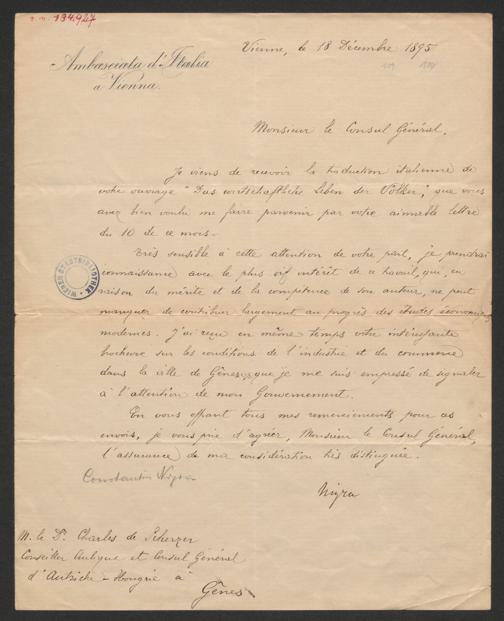 134.927
Ambasciata d'Italia
a Vienna.
Vienne, le 18 Décembre 1895
Monsieur le Consul Général,
Je viens de recevoir la traduction italienne de
votre ouvrage "Das wirtschaftliche Leben der Völker," que vous
avez bien voulu me faire parvenir par votre aimable lettre
du 10 de ce mois.
Très sensible à cette attention de votre part, je prendrai
connaissance avec le plus vif intérêt de ce travail, qui, en
raison du mérite et de la compétence de son auteur, ne peut
manquer de contribuer largement au progrès des études économiques
modernes. J'ai reçu en même temps votre intéressante
brochure sur les conditions de l'industrie et du commerce
dans la ville de Gênes, que je me suis empressé de signaler
à l'attention de mon Gouvernement.
En vous offrant tous mes remerciements pour ces
envois, je vous prie d'agréer, Monsieur le Consul Général,
l'assurance de ma considération très distinguée.
Constantin Nigra
Nigra
M. le Dr. Charles de Scherzer
Conseiller Aulique et Consul Général
d'Autriche-Hongrie à
Gênes